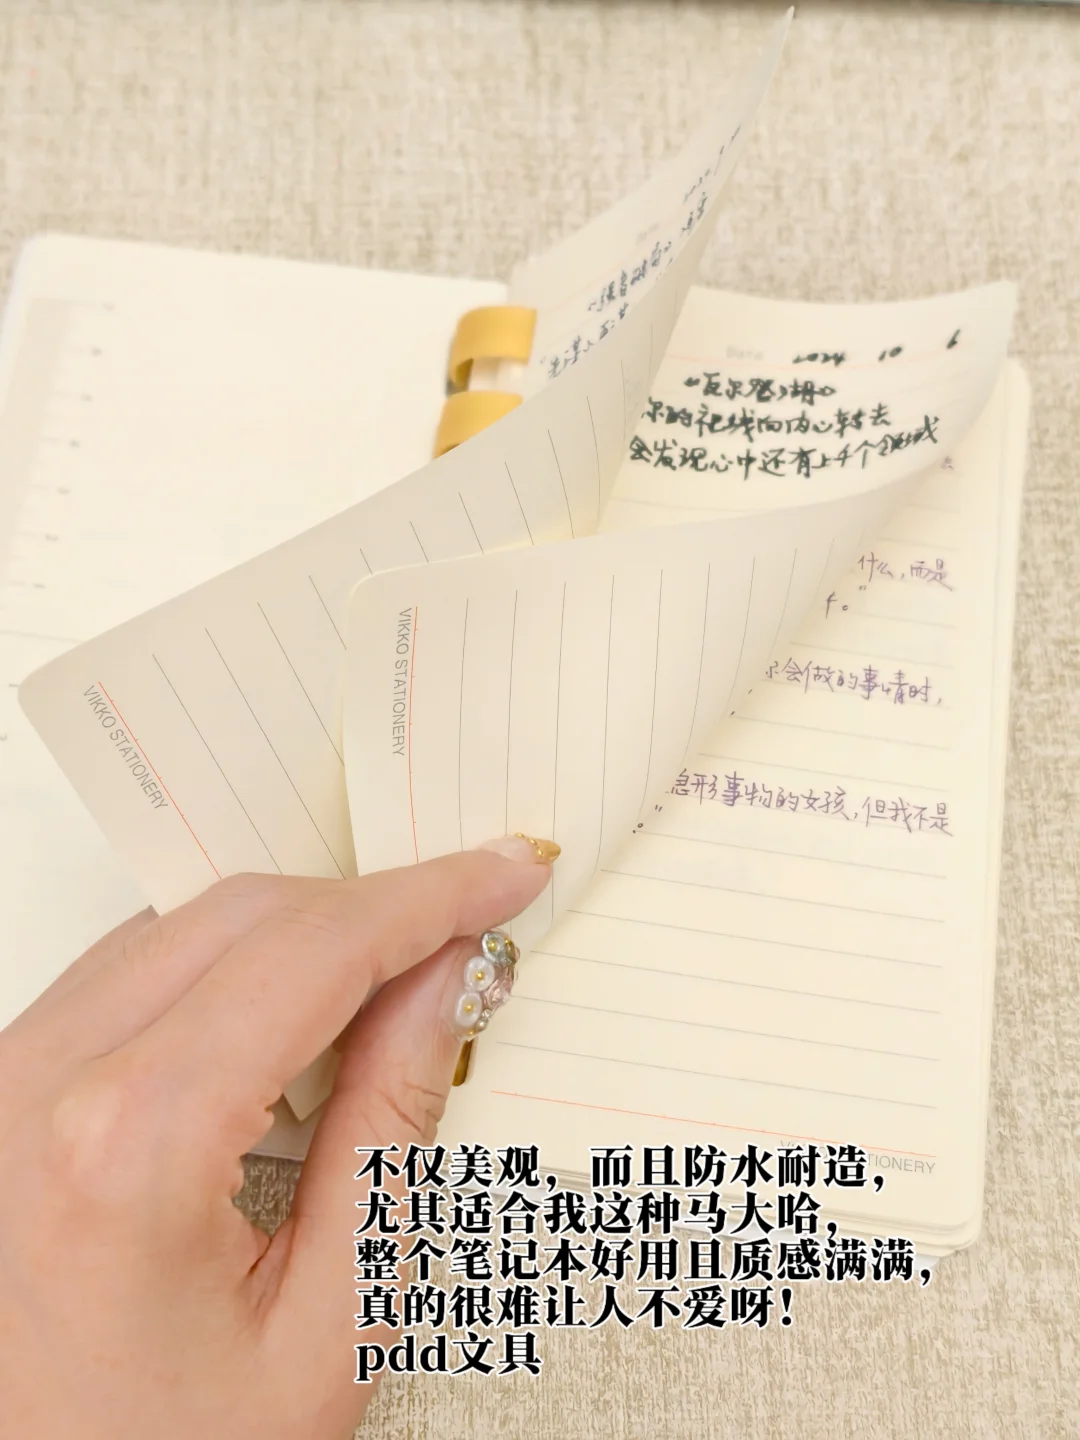 Date 2024 10 6
《瓦尔登湖》
尔的视线向内心转去
会发现心中还有上千个领域
什么,而是
会做的事情时,
事物的女孩,但我不是
VIKKO STATIONERY
VIKKO STATIONERY
TIONERY
不仅美观，而且防水耐造，
尤其适合我这种马大哈，
整个笔记本好用且质感满满，
真的很难让人不爱呀！
pdd文具